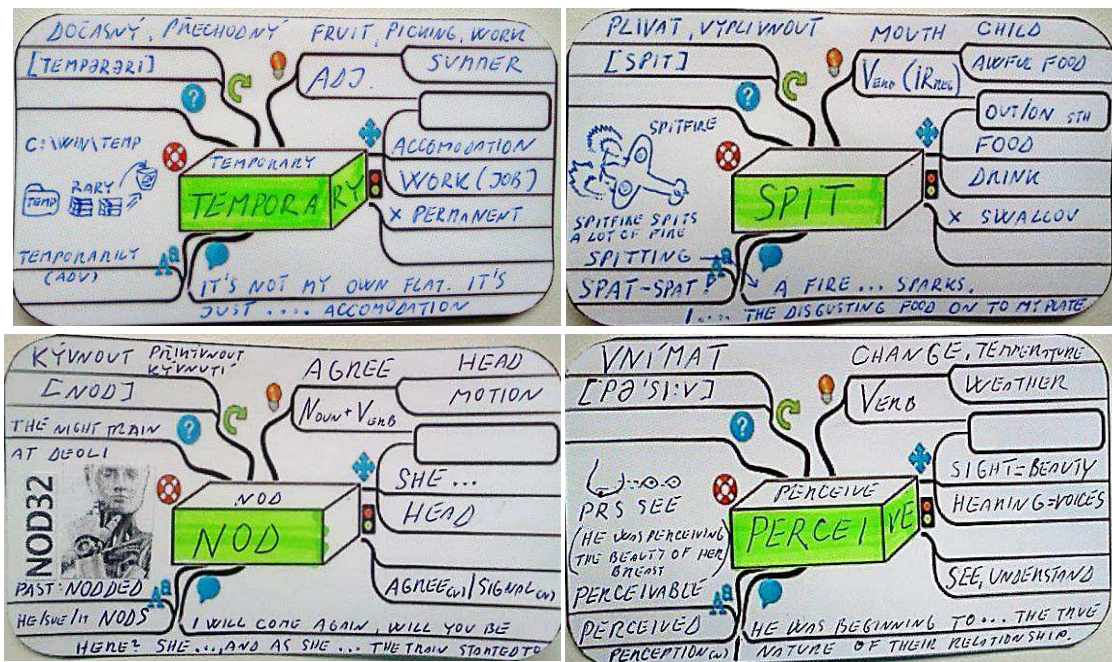 DOČASNÝ, PŘECHODNÝ
FRUIT, PICKING, WORK
[TEMPƏRƏRI]
ADJ.
SUMMER
C:\WIN\TEMP
RARY
TEMP
TEMPORARY
TEMPORARY
ACCOMODATION
WORK (JOB)
× PERMANENT
TEMPORARILY
(ADV)
Aa
IT'S NOT MY OWN FLAT. IT'S
JUST .... ACCOMODATION
PLIVAT, VYPLIVNOUT
MOUTH
CHILD
[SPIT]
VERB (IRREG)
AWFUL FOOD
OUT/ON STH
SPITFIRE
FOOD
DRINK
SPIT
× SWALLOV
SPITFIRE SPITS
A LOT OF FIRE
SPITTING
SPAT-SPAT!
Aa
A FIRE ... SPARKS.
I .... THE DISGUSTING FOOD ON TO MY PLATE
KÝVNOUT PŘIKÝVNOUT
KÝVNUTÍ
AGREE
HEAD
[NOD]
NOUN + VERB
MOTION
THE NIGHT TRAIN
AT DEOLI
NOD32
NOD
NOD
SHE ...
HEAD
AGREE(V)/SIGNAL(V)
PAST: NODDED
HE/SHE/IT NODS
Aa
I WILL COME AGAIN, WILL YOU BE
HERE? SHE ..., AND AS SHE ... THE TRAIN STARTED TO
VNÍMAT
CHANGE, TEMPERATURE
[PƏ'SI:V]
VERB
WEATHER
PRS SEE
(HE WAS PERCEIVING
THE BEAUTY OF HER
BREAST
PERCEIVE
PERCEIVE
SIGHT=BEAUTY
HEARING=VOICES
SEE, UNDERSTAND
PERCEIVABLE
PERCEIVED
PERCEPTION(N)
Aa
HE WAS BEGINNING TO ... THE TRUE
NATURE OF THEIR RELATIONSHIP.